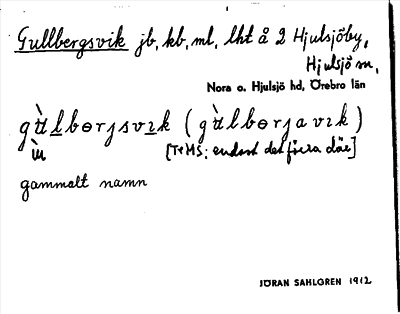 Gullbergsvik jb, kb, ml, lht å 2 Hjulsjöby,
Hjulsjö sn,
Nora o. Hjulsjö hd, Örebro län
gùlbɵrjsvɪk (gùlbɵrjavɪk)
[T+MS: endast det förra där]
gammalt namn
JÖRAN SAHLGREN 1912